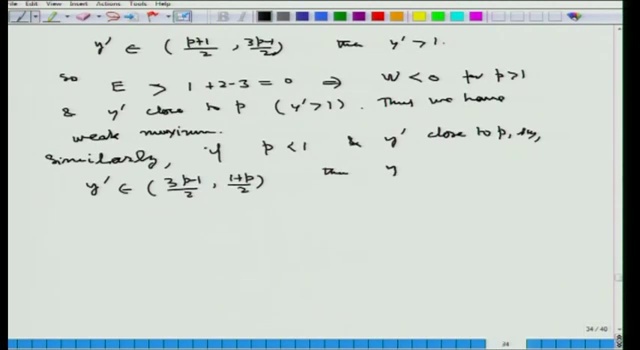 File Edit View Insert Actions Tools Help
y' ∈ (p+1/2, 3p-1/2) then y' > 1.
so E > 1+2-3 = 0 ⇒ W < 0 for p > 1
& y' close to p (y' > 1). Thus we have
weak maximum.
Similarly, if p < 1 & y' close to p, say,
y' ∈ (3p-1/2, 1+p/2) then y
34 / 40
34